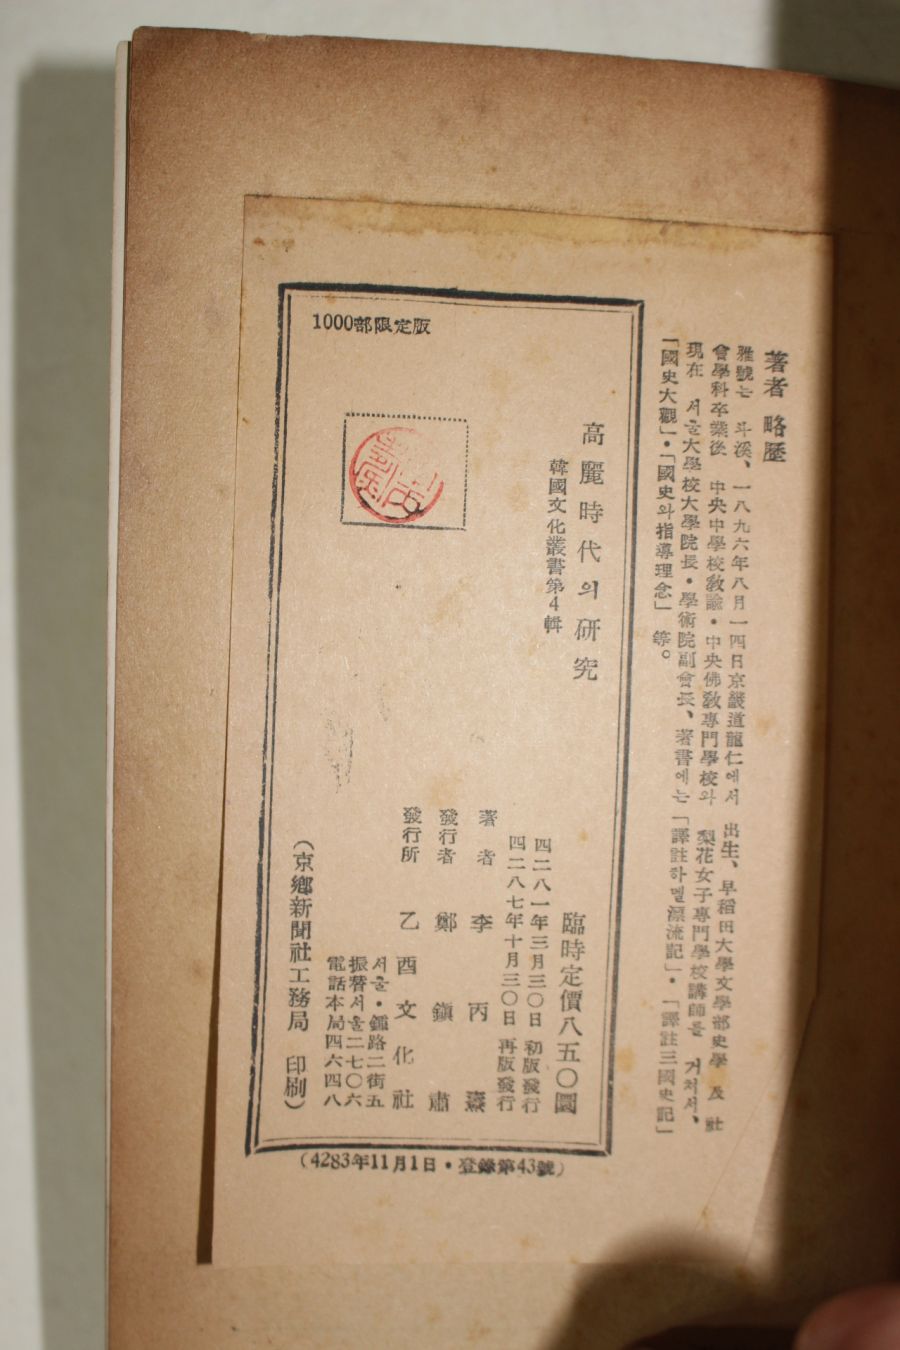 著者 略歷
雅號는 斗溪、一八九六年八月一四日京畿道龍仁에서 出生、早稻田大學文學部史學 及 社
會學科卒業後 中央中學校敎諭・中央佛敎專門學校와 梨花女子專門學校講師를 거처서、
現在 서울大學校大學院長・學術院副會長、著書에는「譯註하멜漂流記」・「譯註三國史記」
「國史大觀」・「國史와指導理念」等。
高麗時代의硏究
韓國文化叢書第4輯
臨時定價八五〇圜
四二八一年三月三〇日 初版發行
四二八七年十月三〇日 再版發行
著者 李丙燾
發行者 鄭鎭肅
發行所 乙酉文化社
서울・鍾路二街五
振替서울二七〇六
電話本局四六四八
(京鄕新聞社工務局 印刷)
1000部限定版
(4283年11月1日・登錄第43號)